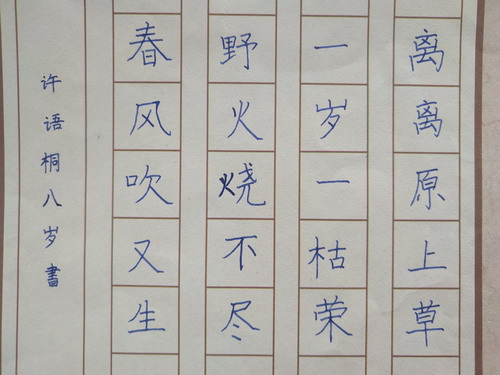 离离原上草
一岁一枯荣
野火烧不尽
春风吹又生
许语桐八岁書